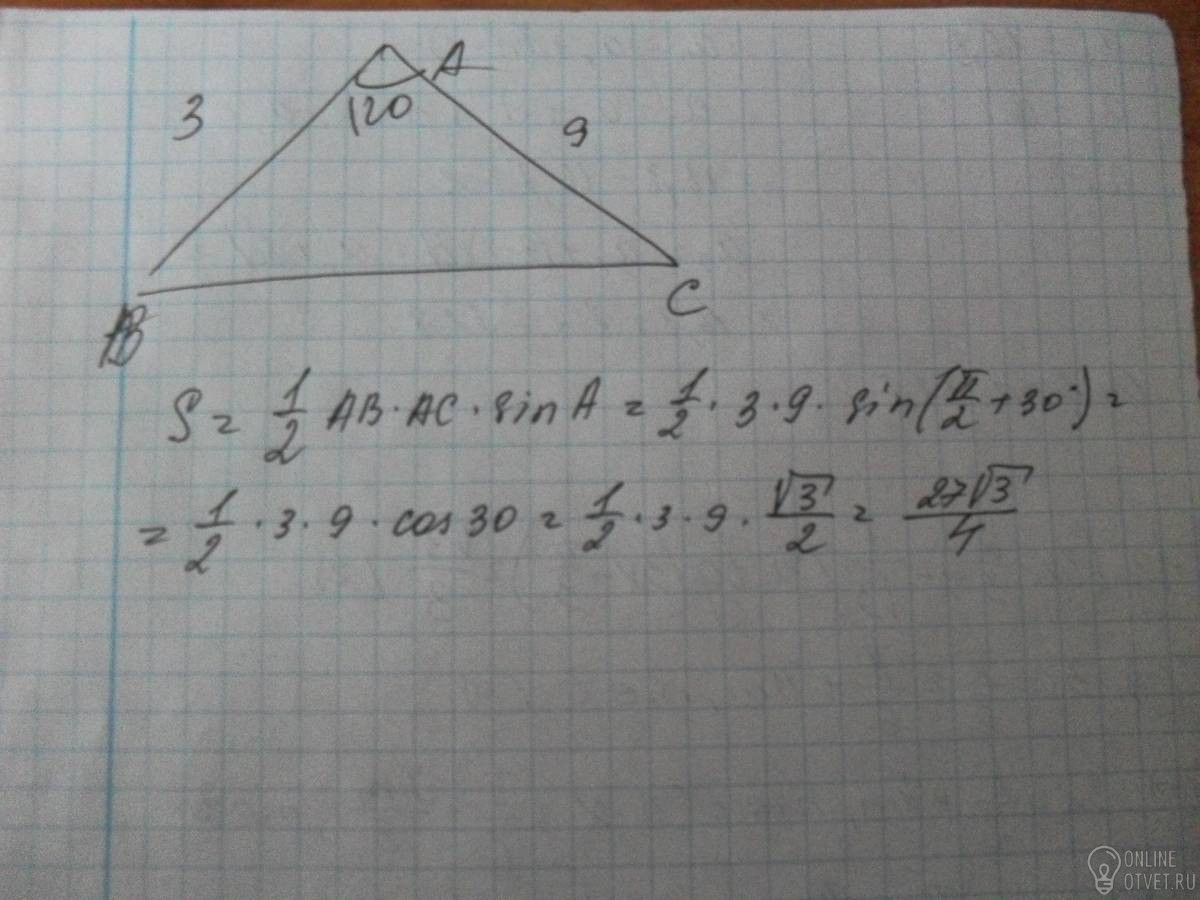 A
3
120
9
B
C
S = 1/2 AB · AC · sin A = 1/2 · 3 · 9 · sin(π/2 + 30°) =
= 1/2 · 3 · 9 · cos 30 = 1/2 · 3 · 9 · √3/2 = 27√3/4
ONLINE
OTVET.RU